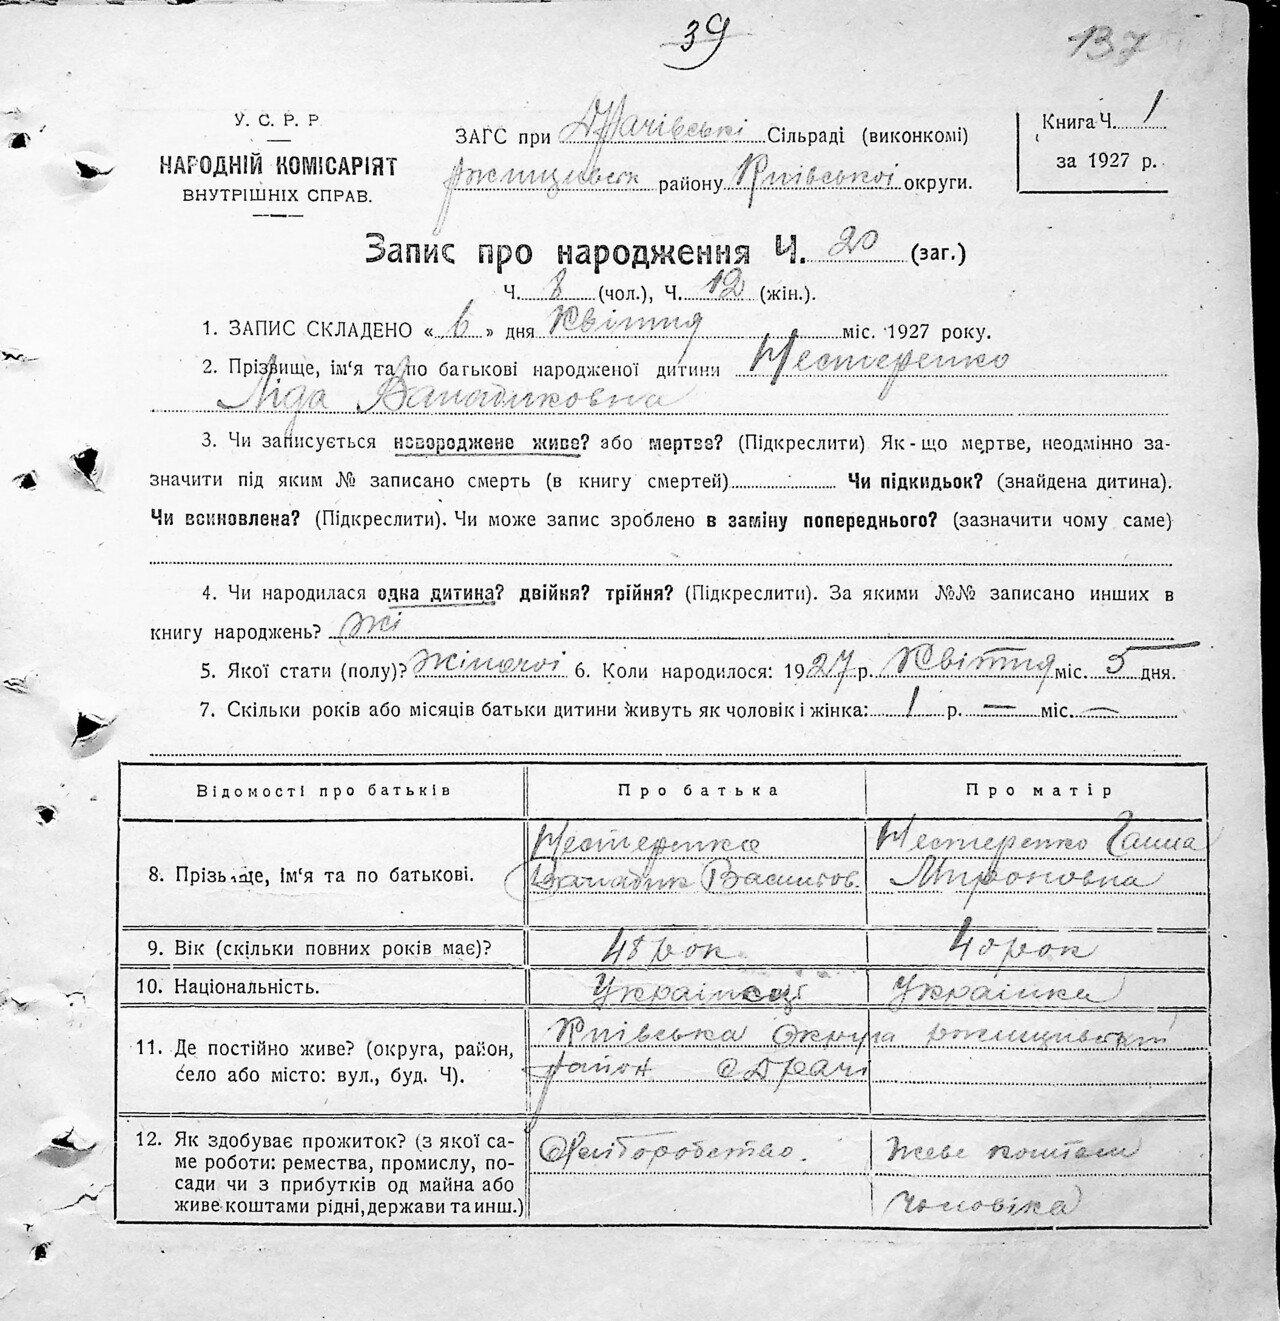 39
137
У. С. Р. Р
НАРОДНІЙ КОМІСАРІЯТ
ВНУТРІШНІХ СПРАВ.
ЗАГС при Драчівські Сільраді (виконкомі)
Ржищивськ району Київської округи.
Книга Ч. 1
за 1927 р.
Запис про народження Ч. 20 (заг.)
Ч. 8 (чол.), Ч. 12 (жін.).
1. ЗАПИС СКЛАДЕНО « 6 » дня Квітня міс. 1927 року.
2. Прізвище, ім'я та по батькові народженої дитини Нестеренко
Ліда
3. Чи записується новороджене живе? або мертве? (Підкреслити) Як-що мертве, неодмінно за-
значити під яким № записано смерть (в книгу смертей) Чи підкидьок? (знайдена дитина).
Чи всиновлена? (Підкреслити). Чи може запис зроблено в заміну попереднього? (зазначити чому саме)
4. Чи народилася одна дитина? двійня? трійня? (Підкреслити). За якими №№ записано инших в
книгу народжень?
5. Якої стати (полу)? Жіночої 6. Коли народилося: 1927 р. Квітня міс. 5 дня.
7. Скільки років або місяців батьки дитини живуть як чоловік і жінка: 1 р. — міс. —
Відомості про батьків
Про батька
Про матір
8. Прізвіще, ім'я та по батькові.
Нестеренко
Васильов.
Нестеренко Ганна
Мироновна
9. Вік (скільки повних років має)?
48 рок
40 рок
10. Національність.
Українка
11. Де постійно живе? (округа, район,
село або місто: вул., буд. Ч).
Київська Округа Ржищивський
район с Драчі
12. Як здобуває прожиток? (з якої са-
ме роботи: ремества, промислу, по-
сади чи з прибутків од майна або
живе коштами рідні, держави та инш.)
Хліборобство.
Живе коштом
Чоловіка